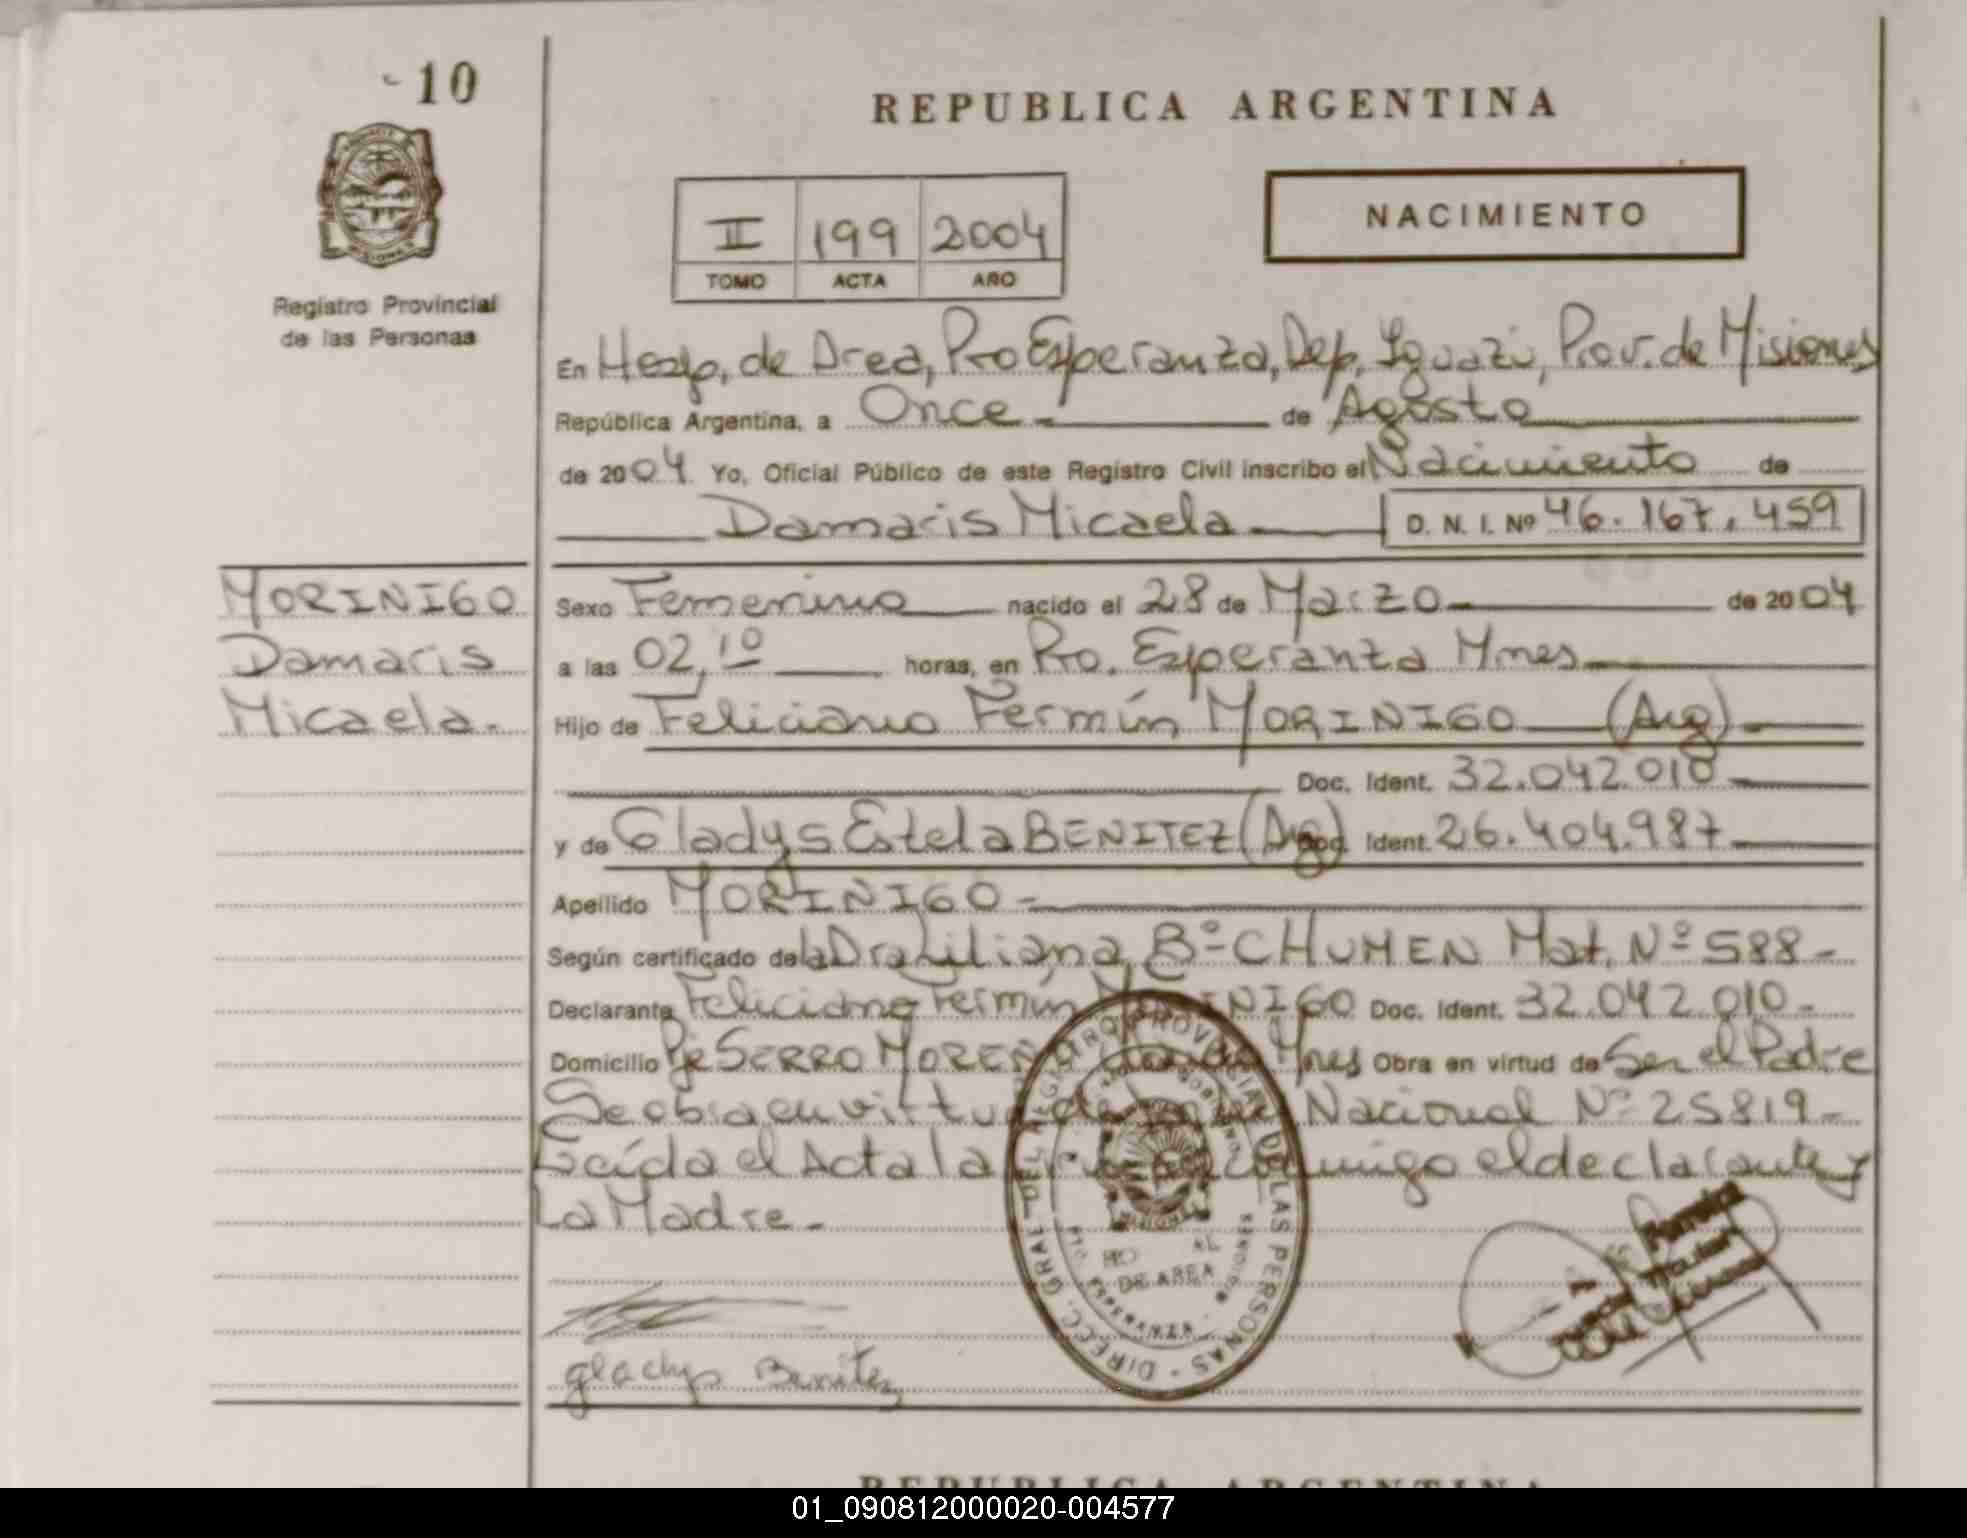 -10
REPUBLICA ARGENTINA
II 199 2004
TOMO ACTA AÑO
NACIMIENTO
Registro Provincial
de las Personas
En Hosp. de Area, Pto Esperanza, Dep. Iguazú, Prov. de Misiones
República Argentina, a Once de Agosto
de 2004 Yo, Oficial Público de este Registro Civil inscribo el Nacimiento de
Damaris Micaela D. N. I. Nº 46.167.459
MORINIGO
Damaris
Micaela.
Sexo Femenino nacido el 28 de Marzo de 2004
a las 02,10 horas, en Pto. Esperanza Mnes
Hijo de Feliciano Fermín MORINIGO (Arg)
Doc. Ident. 32.042.010
y de Gladys Estela BENITEZ (Arg) Doc. Ident. 26.404.987
Apellido MORINIGO
Según certificado de la Dra Liliana Bº CHUMEN Mat. Nº 588
Declarante Feliciano Fermín MORINIGO Doc. Ident. 32.042.010
Domicilio Pje SERRO MOREN Mnes Obra en virtud de Ser el Padre
Se obra en virtud de Nacional Nº 25819
Leída el Acta la conmigo el declarante y
La Madre.
DIRECC. GRAL DEL REGISTRO PROVINCIAL DE LAS PERSONAS
DE AREA
gladys Benitez
REPUBLICA ARGENTINA
01_090812000020-004577